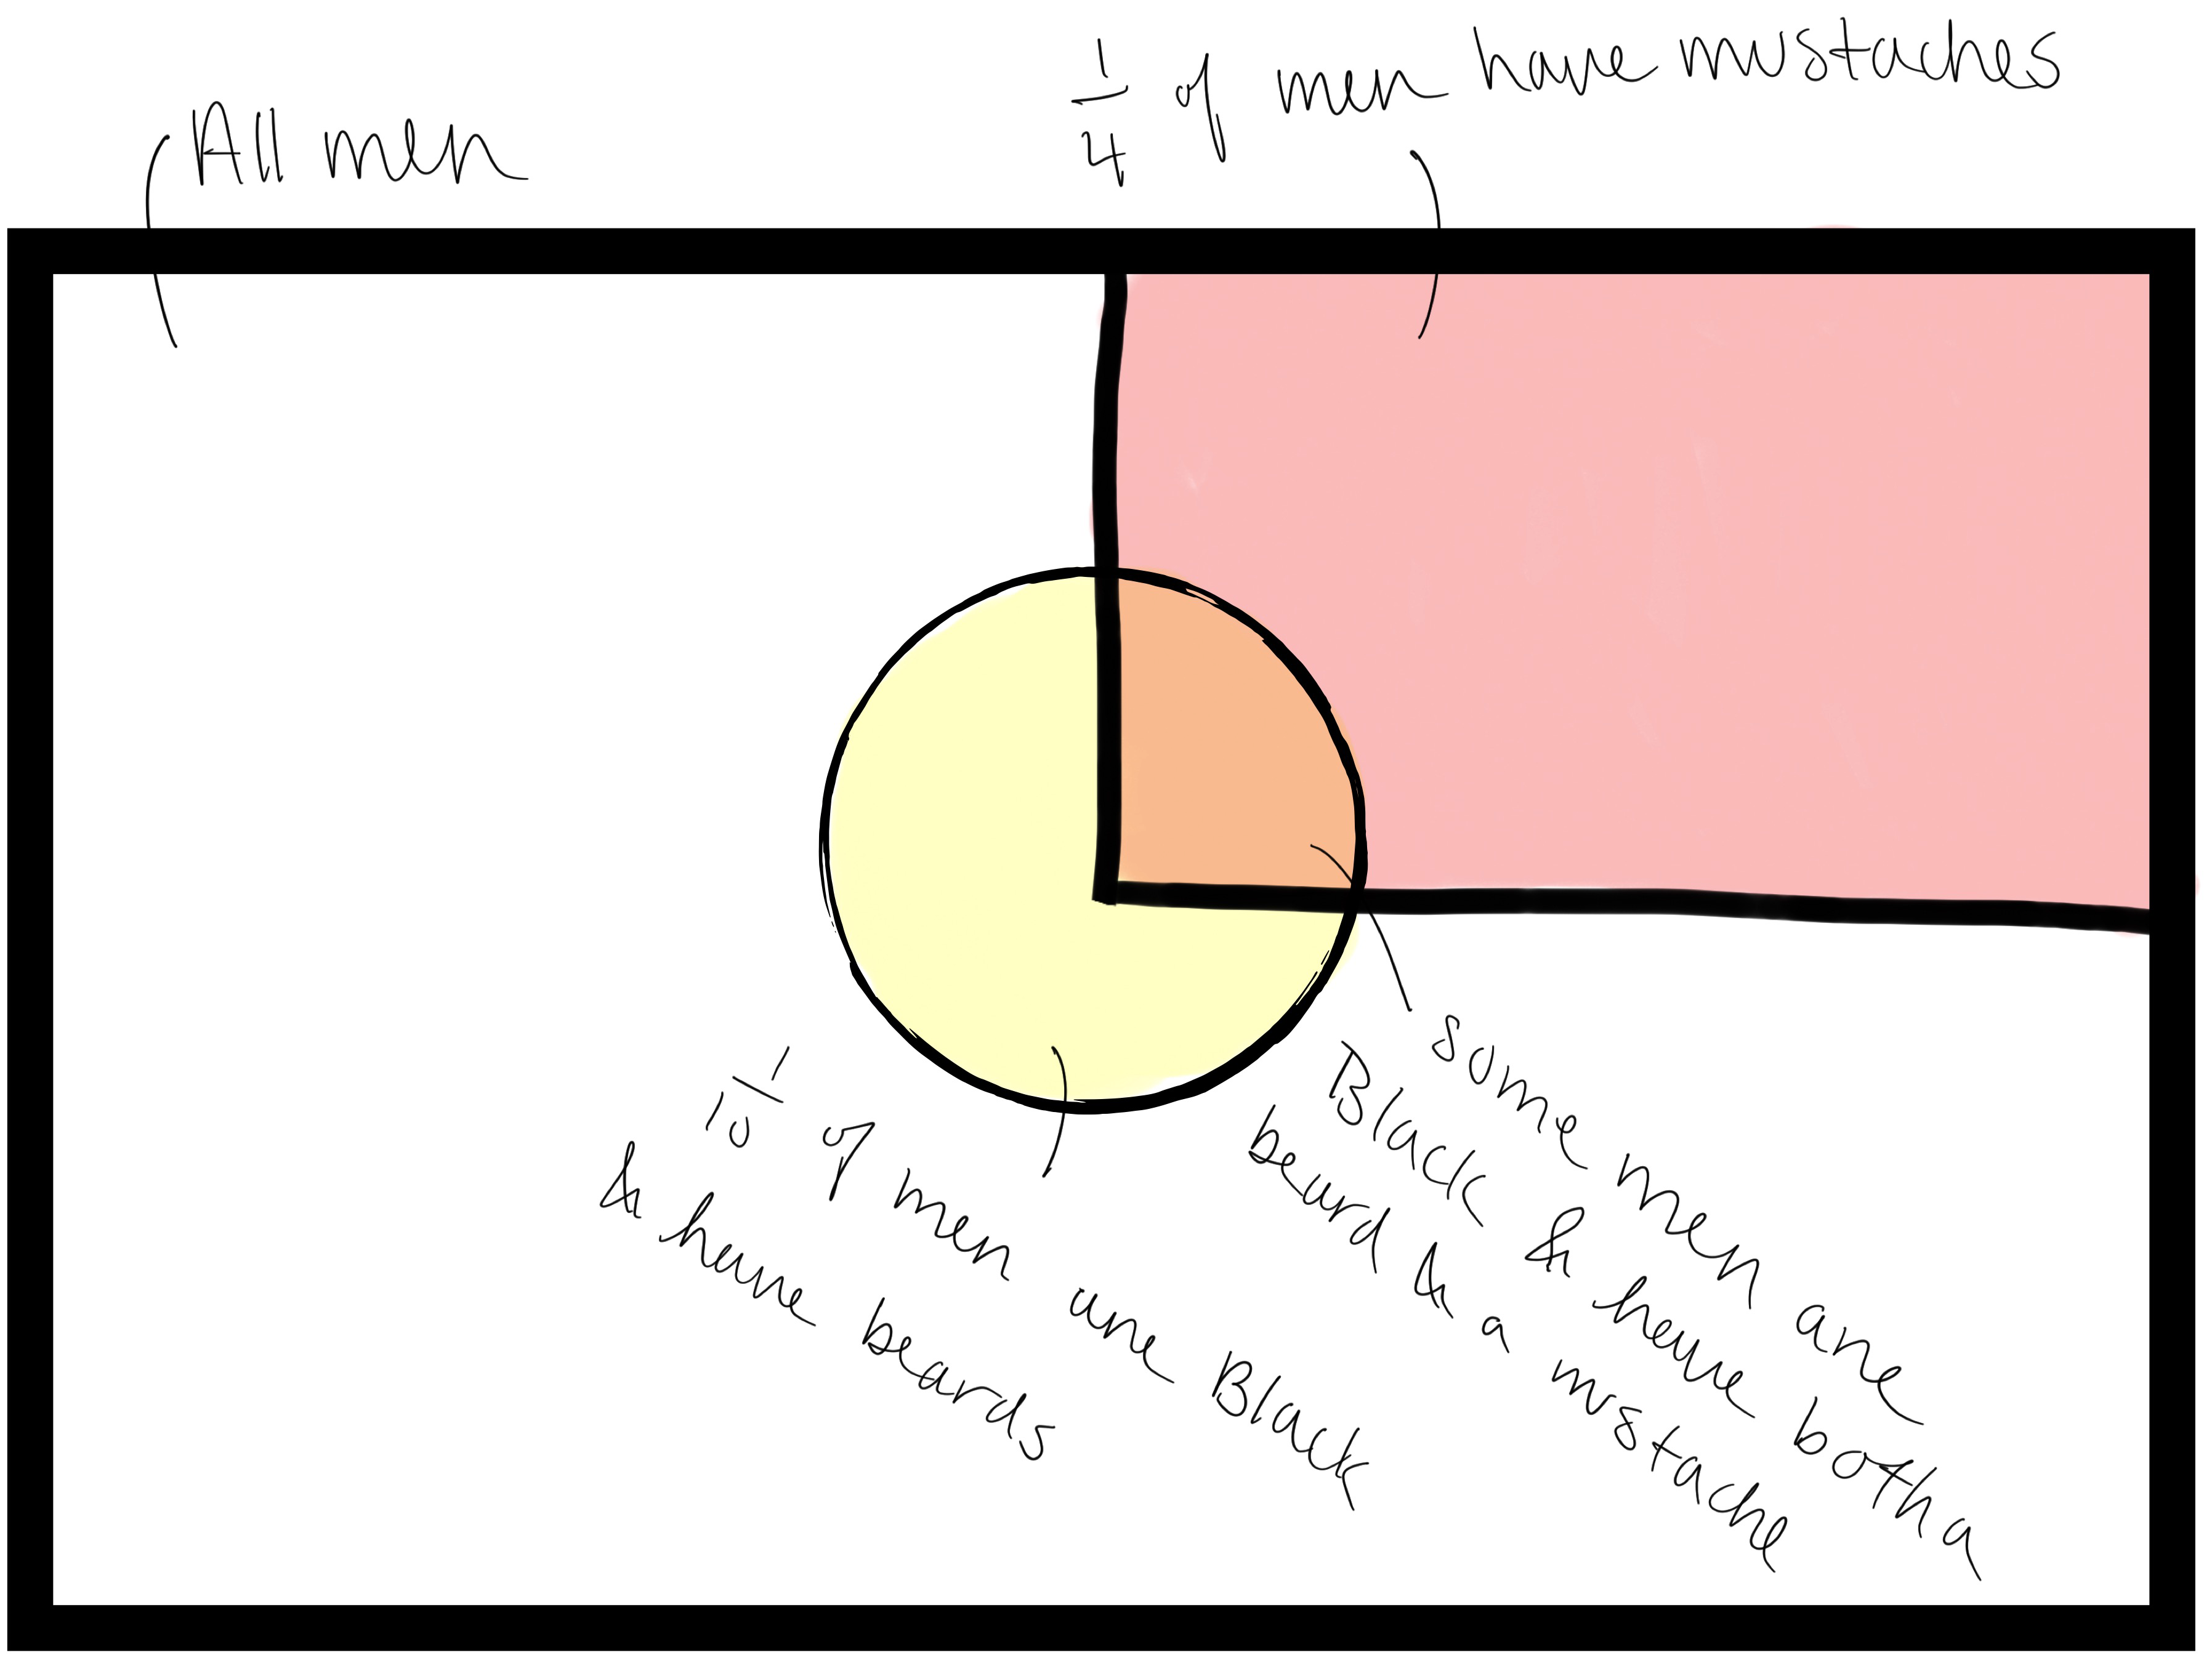 All men
1/4 of men have mustaches
1/10 of men are Black
& have beards
Some men are
Black & have both a
beard & a mustache